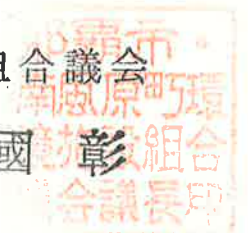 組合議会
國 彰
那覇市・
南風原町環
境施設組合
議会議長印